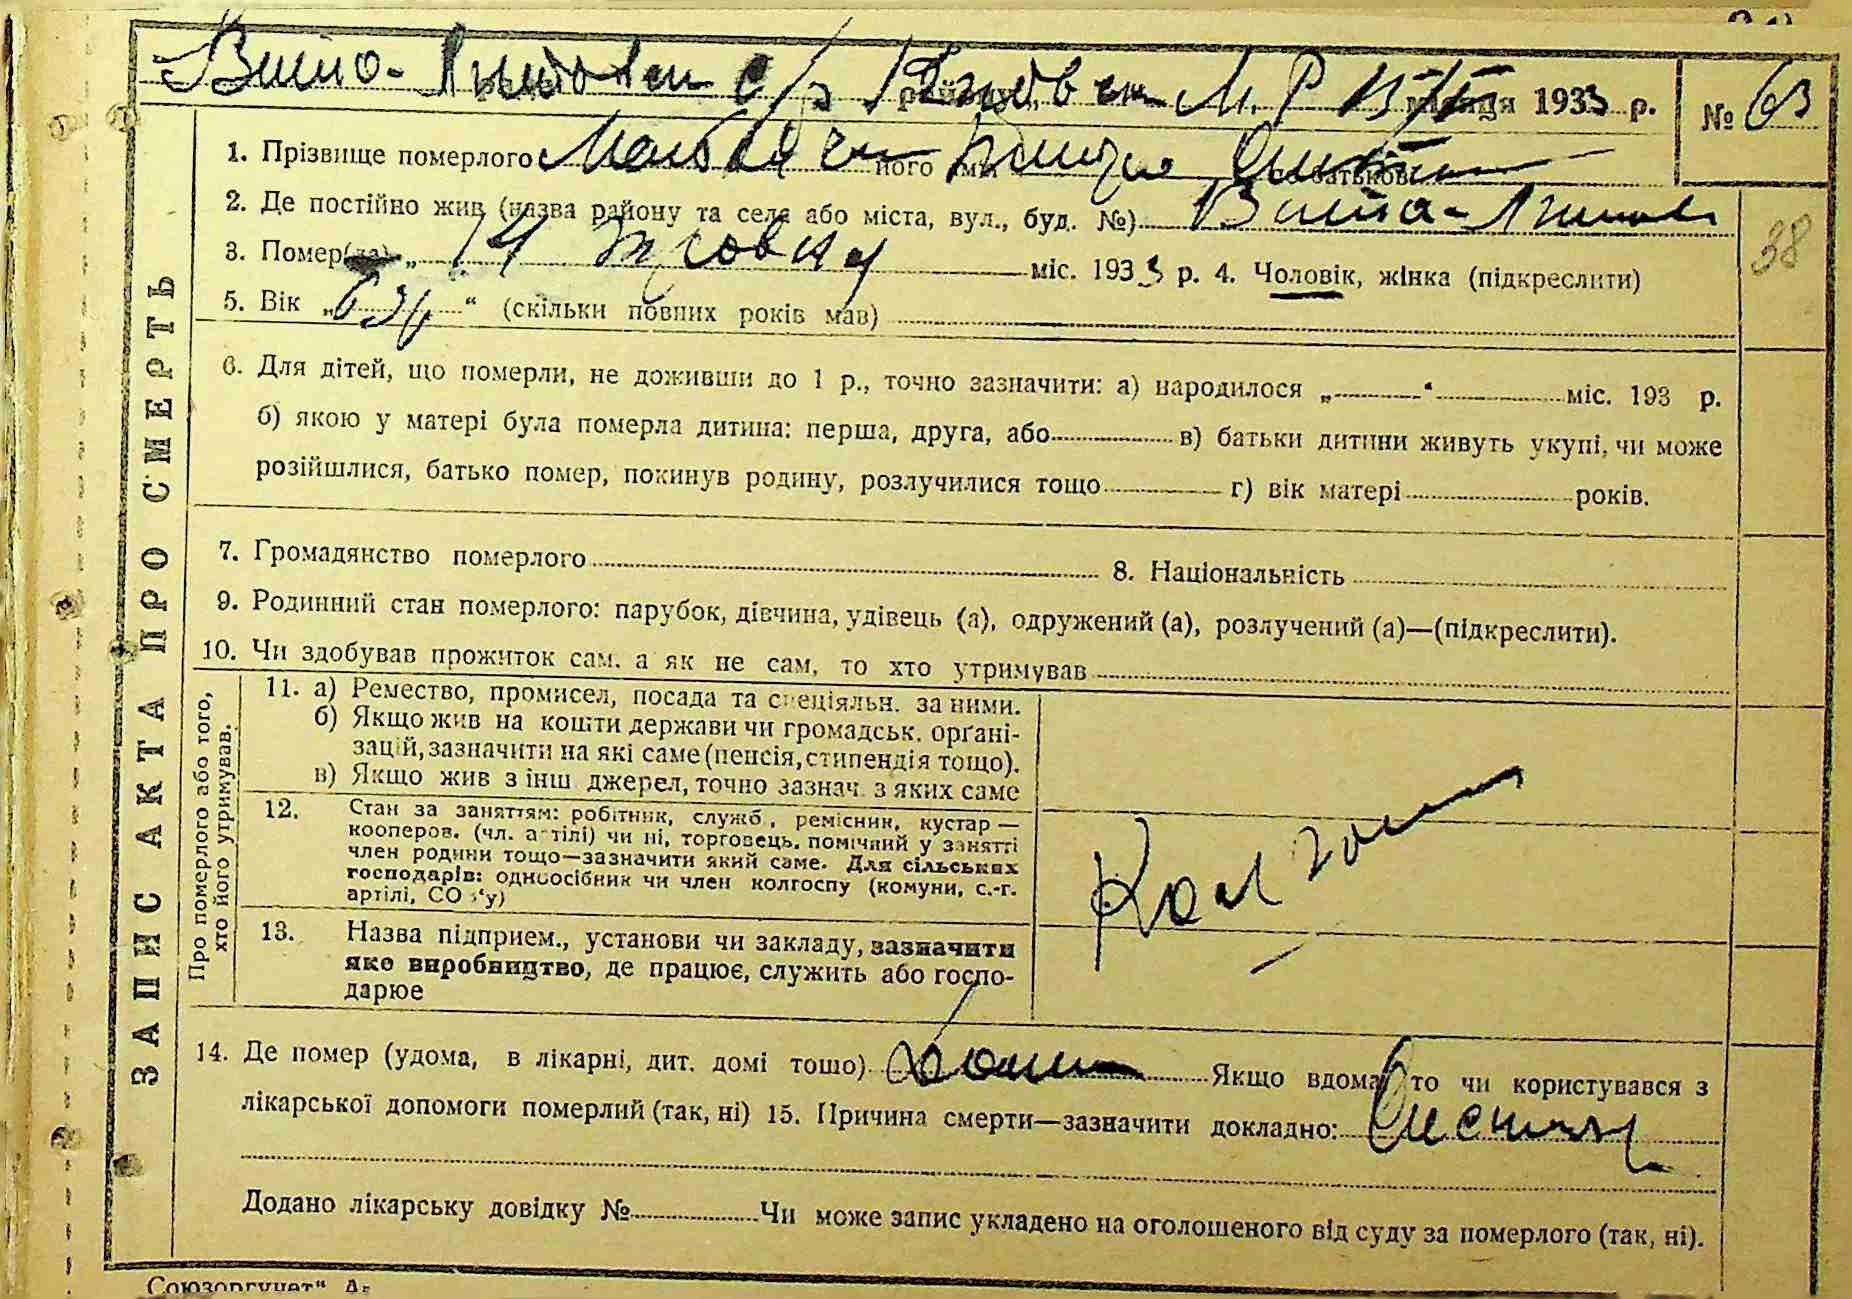 Віто-Литовськ с/р Київськ М.Р 13/VI місяця 1933 р. № 63
1. Прізвище померлого його ім'я по батькові
2. Де постійно жив (назва району та села або міста, вул., буд. №) Вита-Литовс
38
3. Помер(ла) „ 14 Травня міс. 1933 р. 4. Чоловік, жінка (підкреслити)
5. Вік „ 63 р “ (скільки повних років мав)
6. Для дітей, що померли, не доживши до 1 р., точно зазначити: а) народилося „ “ міс. 193 р.
б) якою у матері була померла дитина: перша, друга, або в) батьки дитини живуть укупі, чи може
розійшлися, батько помер, покинув родину, розлучилися тощо г) вік матері років.
7. Громадянство померлого 8. Національність
9. Родинний стан померлого: парубок, дівчина, удівець (а), одружений (а), розлучений (а)—(підкреслити).
10. Чи здобував прожиток сам, а як не сам, то хто утримував
ЗАПИС АКТА ПРО СМЕРТЬ
Про померлого або того,
хто його утримував.
11. а) Ремество, промисел, посада та спеціяльн. за ними.
б) Якщо жив на кошти держави чи громадськ. орґані-
зацій, зазначити на які саме (пенсія, стипендія тощо).
в) Якщо жив з інш. джерел, точно зазнач. з яких саме
12. Стан за заняттям: робітник, служб., ремісник, кустар—
кооперов. (чл. артілі) чи ні, торговець, помічний у занятті
член родини тощо—зазначити який саме. Для сільських
господарів: одноосібник чи член колгоспу (комуни, с.-г.
артілі, СО у)
Колгосп
13. Назва підприєм., установи чи закладу, зазначити
яке виробництво, де працює, служить або госпо-
дарює
14. Де помер (удома, в лікарні, дит. домі тощо) Дома Якщо вдома, то чи користувався з
лікарської допомоги померлий (так, ні) 15. Причина смерти—зазначити докладно:
Додано лікарську довідку № Чи може запис укладено на оголошеного від суду за померлого (так, ні).
Союзоргучет"